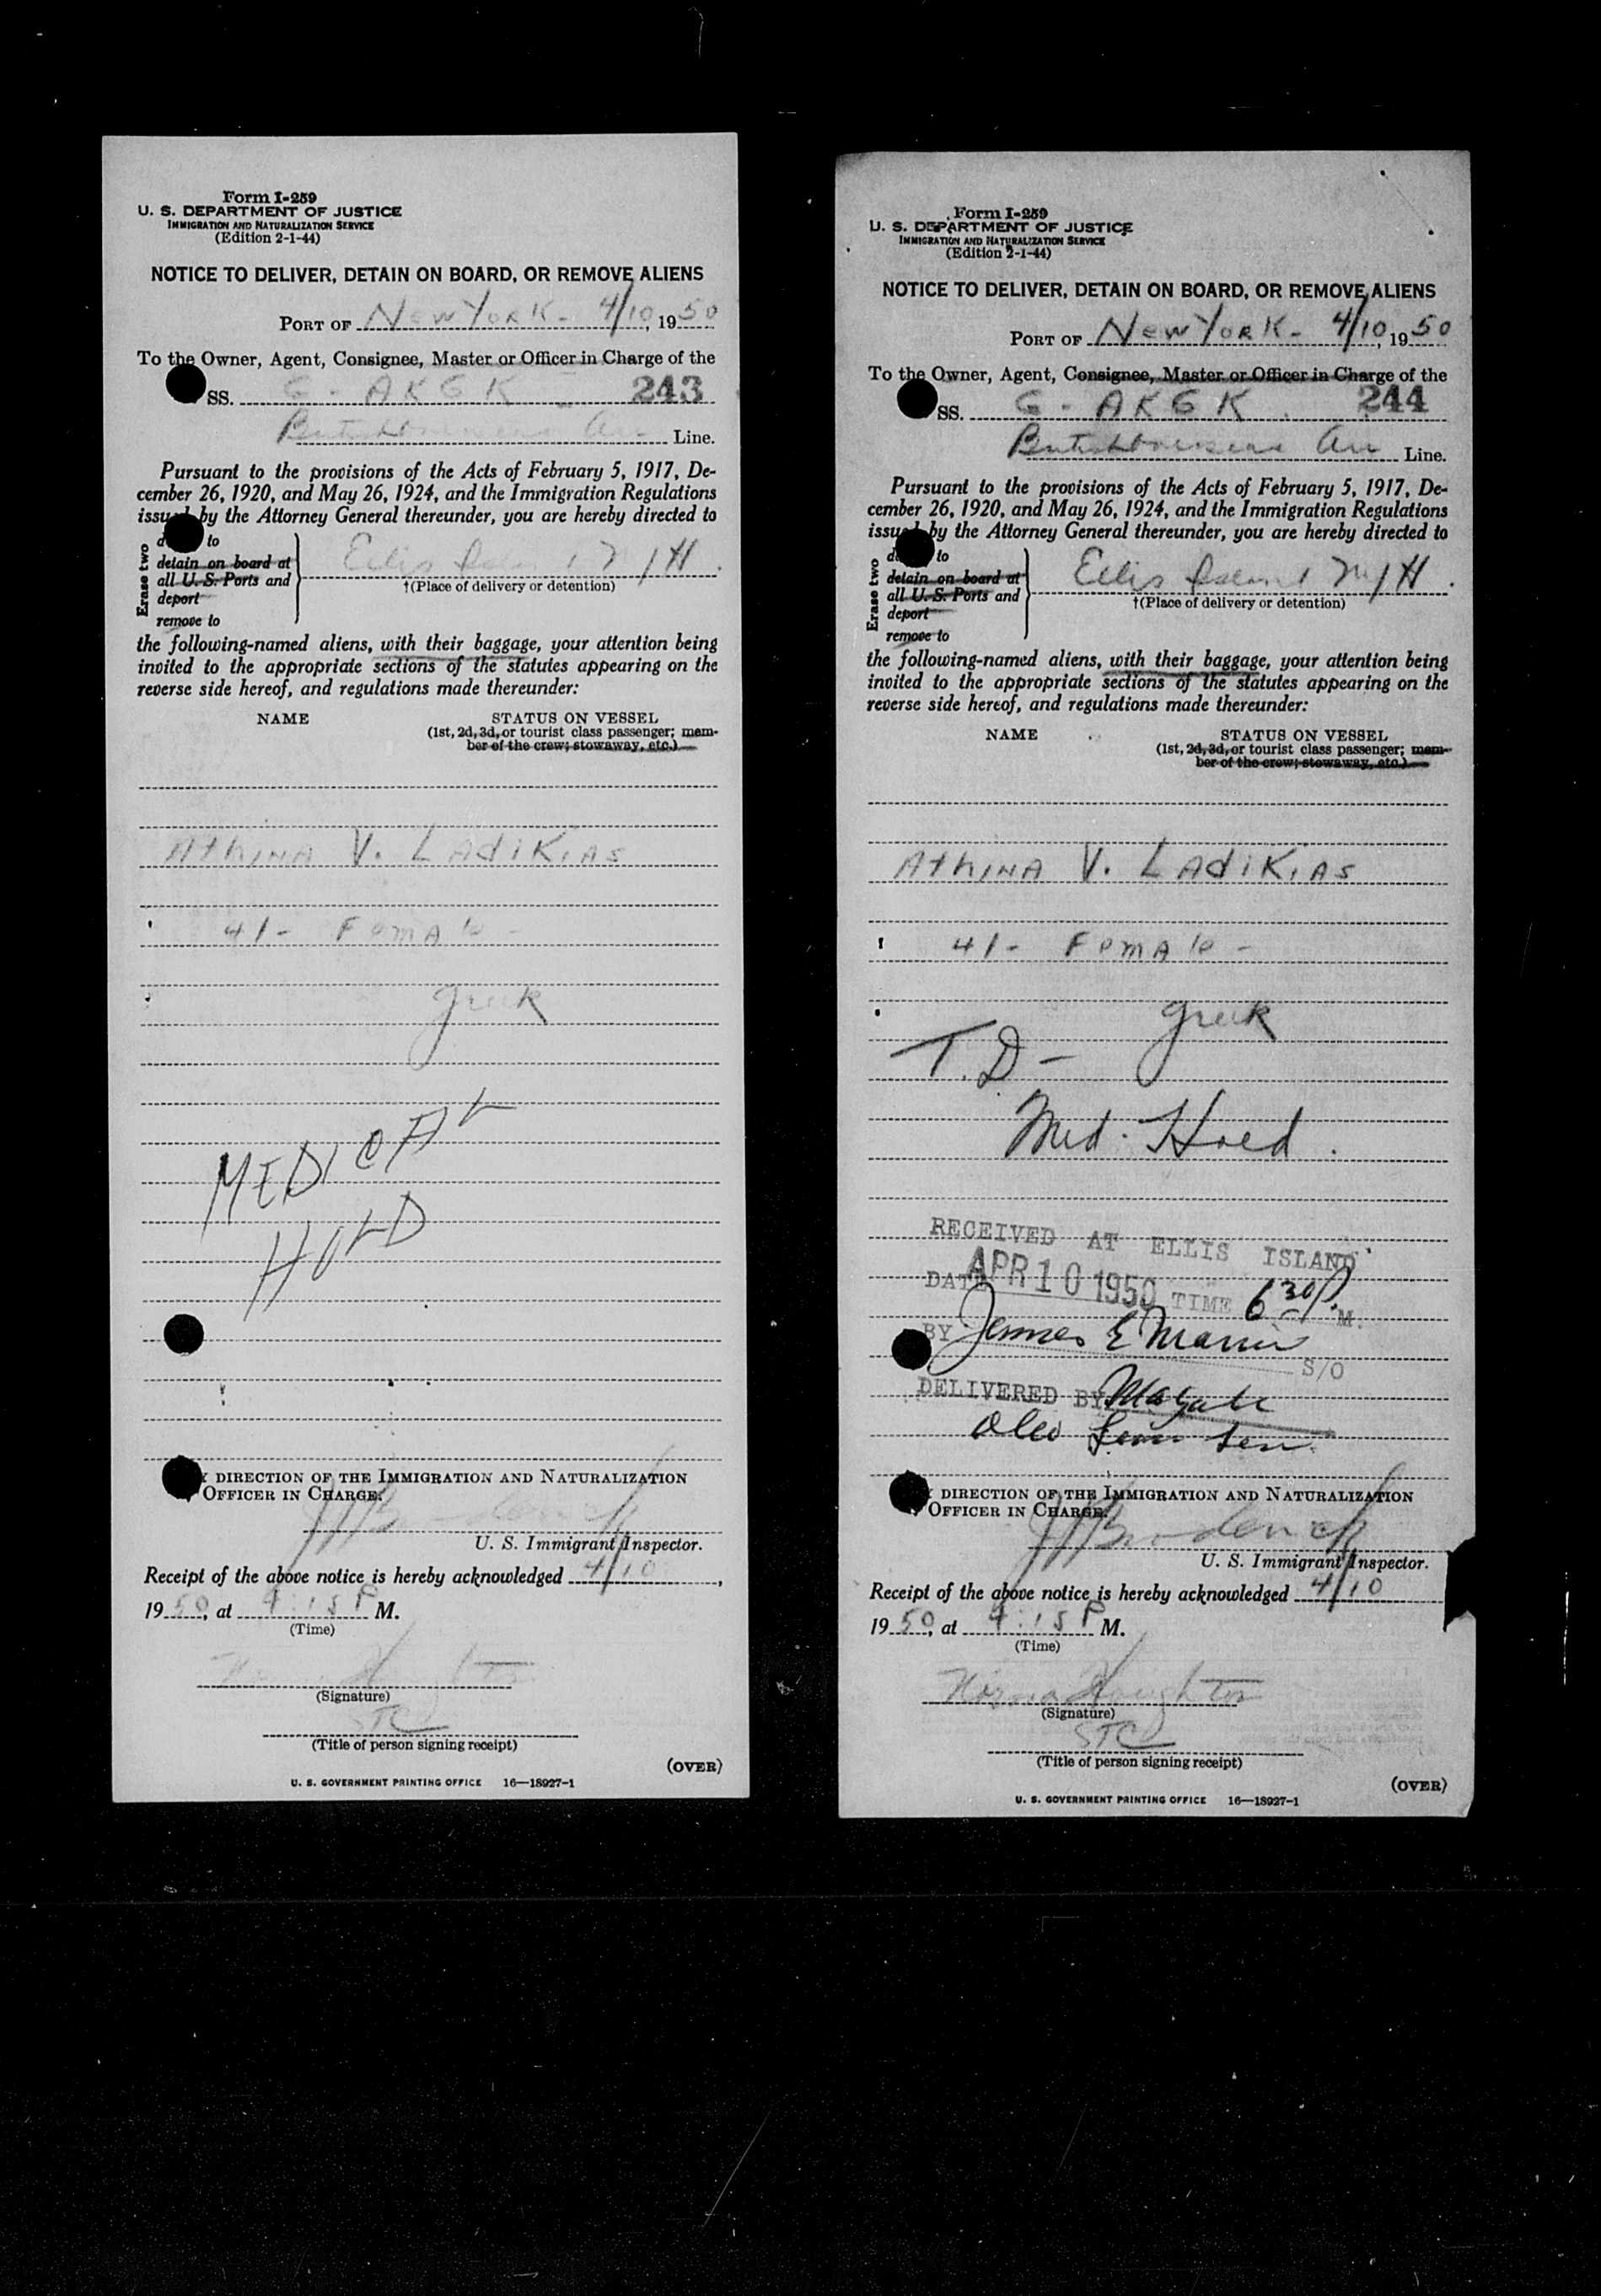 Form I-259
U. S. DEPARTMENT OF JUSTICE
IMMIGRATION AND NATURALIZATION SERVICE
(Edition 2-1-44)
NOTICE TO DELIVER, DETAIN ON BOARD, OR REMOVE ALIENS
PORT OF New York - 4/10, 1950
To the Owner, Agent, Consignee, Master or Officer in Charge of the
SS. G - AKGK 243
Air Line.
Pursuant to the provisions of the Acts of February 5, 1917, De-
cember 26, 1920, and May 26, 1924, and the Immigration Regulations
issued by the Attorney General thereunder, you are hereby directed to
Erase two
to
detain on board at
all U. S. Ports and
deport
remove to
Ellis Island NYH.
†(Place of delivery or detention)
the following-named aliens, with their baggage, your attention being
invited to the appropriate sections of the statutes appearing on the
reverse side hereof, and regulations made thereunder:
NAME STATUS ON VESSEL
(1st, 2d, 3d, or tourist class passenger; mem-
ber of the crew; stowaway, etc.)
Athina V. Ladikias
41 - Female -
Greek
MEDICAL
HOLD
DIRECTION OF THE IMMIGRATION AND NATURALIZATION
OFFICER IN CHARGE.
U. S. Immigrant Inspector.
Receipt of the above notice is hereby acknowledged 4/10,
1950, at 4:15 P M.
(Time)
(Signature)
STC
(Title of person signing receipt)
(OVER)
U. S. GOVERNMENT PRINTING OFFICE 16—18927-1
Form I-259
U. S. DEPARTMENT OF JUSTICE
IMMIGRATION AND NATURALIZATION SERVICE
(Edition 2-1-44)
NOTICE TO DELIVER, DETAIN ON BOARD, OR REMOVE ALIENS
PORT OF New York - 4/10, 1950
To the Owner, Agent, Consignee, Master or Officer in Charge of the
SS. G - AKGK 244
Air Line.
Pursuant to the provisions of the Acts of February 5, 1917, De-
cember 26, 1920, and May 26, 1924, and the Immigration Regulations
issued by the Attorney General thereunder, you are hereby directed to
Erase two
to
detain on board at
all U. S. Ports and
deport
remove to
Ellis Island NYH.
†(Place of delivery or detention)
the following-named aliens, with their baggage, your attention being
invited to the appropriate sections of the statutes appearing on the
reverse side hereof, and regulations made thereunder:
NAME STATUS ON VESSEL
(1st, 2d, 3d, or tourist class passenger; mem-
ber of the crew; stowaway, etc.)
Athina V. Ladikias
41 - Female -
Greek
T.D -
Med. Hold.
RECEIVED AT ELLIS ISLAND
DATE APR 10 1950 TIME 6:30 P. M.
BY James E
S/O
DELIVERED BY
DIRECTION OF THE IMMIGRATION AND NATURALIZATION
OFFICER IN CHARGE.
U. S. Immigrant Inspector.
Receipt of the above notice is hereby acknowledged 4/10
1950, at 4:15 P M.
(Time)
Houghton
(Signature)
STC
(Title of person signing receipt)
(OVER)
U. S. GOVERNMENT PRINTING OFFICE 16—18927-1